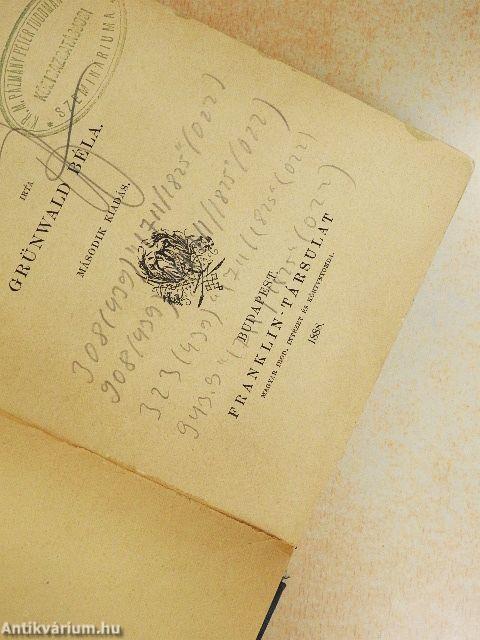 M. PÁZMÁNY PÉTER TUDOMÁNY
KÖZIGAZGATÁSI
SZEMINÁRIUMA
IRTA
GRÜNWALD BÉLA.
MÁSODIK KIADÁS.
308(439)"1711/1825"(022)
908(439)"1711/1825"(022)
323(439)"1711/1825"(022)
943.9"1711/1825"(022)
BUDAPEST.
FRANKLIN-TÁRSULAT
MAGYAR IROD. INTÉZET ÉS KÖNYVNYOMDA.
1888.
Antikvárium.hu